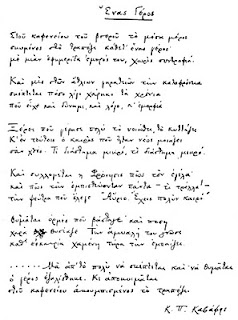 Ἕνας Γέρος
Στοῦ καφενείου τοῦ βοεροῦ τὸ μέσα μέρος
σκυμένος στὸ τραπέζι κάθετ' ἕνας γέρος·
μὲ μιὰν ἐφημερίδα ἐμπρός του, χωρὶς συντροφιά.
Καὶ μὲς στῶν ἄθλιων γηρατειῶν τὴν καταφρόνια
σκέπτεται πόσο λίγο χάρηκε τὰ χρόνια
ποὺ εἶχε καὶ δύναμι, καὶ λόγο, κ' ἐμορφιά.
Ξέρει ποὺ γέρασε πολύ· τὸ νοιώθει, τὸ κυττάζει.
Κ' ἐν τούτοις ὁ καιρὸς ποὺ ἦταν νέος μοιάζει
σὰν χθές. Τί διάστημα μικρό, τί διάστημα μικρό.
Καὶ συλλογιέται ἡ Φρόνησις πῶς τὸν ἐγέλα·
καὶ πῶς τὴν ἐμπιστεύονταν πάντα — τί τρέλλα! —
τὴν ψεύτρα ποὺ ἔλεγε· «Αὔριο. Ἔχεις πολὺν καιρό.»
Θυμᾶται ὁρμὲς ποὺ βάσταγε· καὶ πόση
χαρὰ θυσίαζε. Τὴν ἄμυαλή του γνῶσι
κάθ' εὐκαιρία χαμένη τώρα τὴν ἐμπαίζει.
...... Μὰ ἀπ' τὸ πολὺ νὰ σκέπτεται καὶ νὰ θυμᾶται
ὁ γέρος ἐζαλίσθηκε. Κι ἀποκοιμᾶται
στοῦ καφενείου ἀκουμπισμένος τὸ τραπέζι.
Κ. Π. Καβάφης